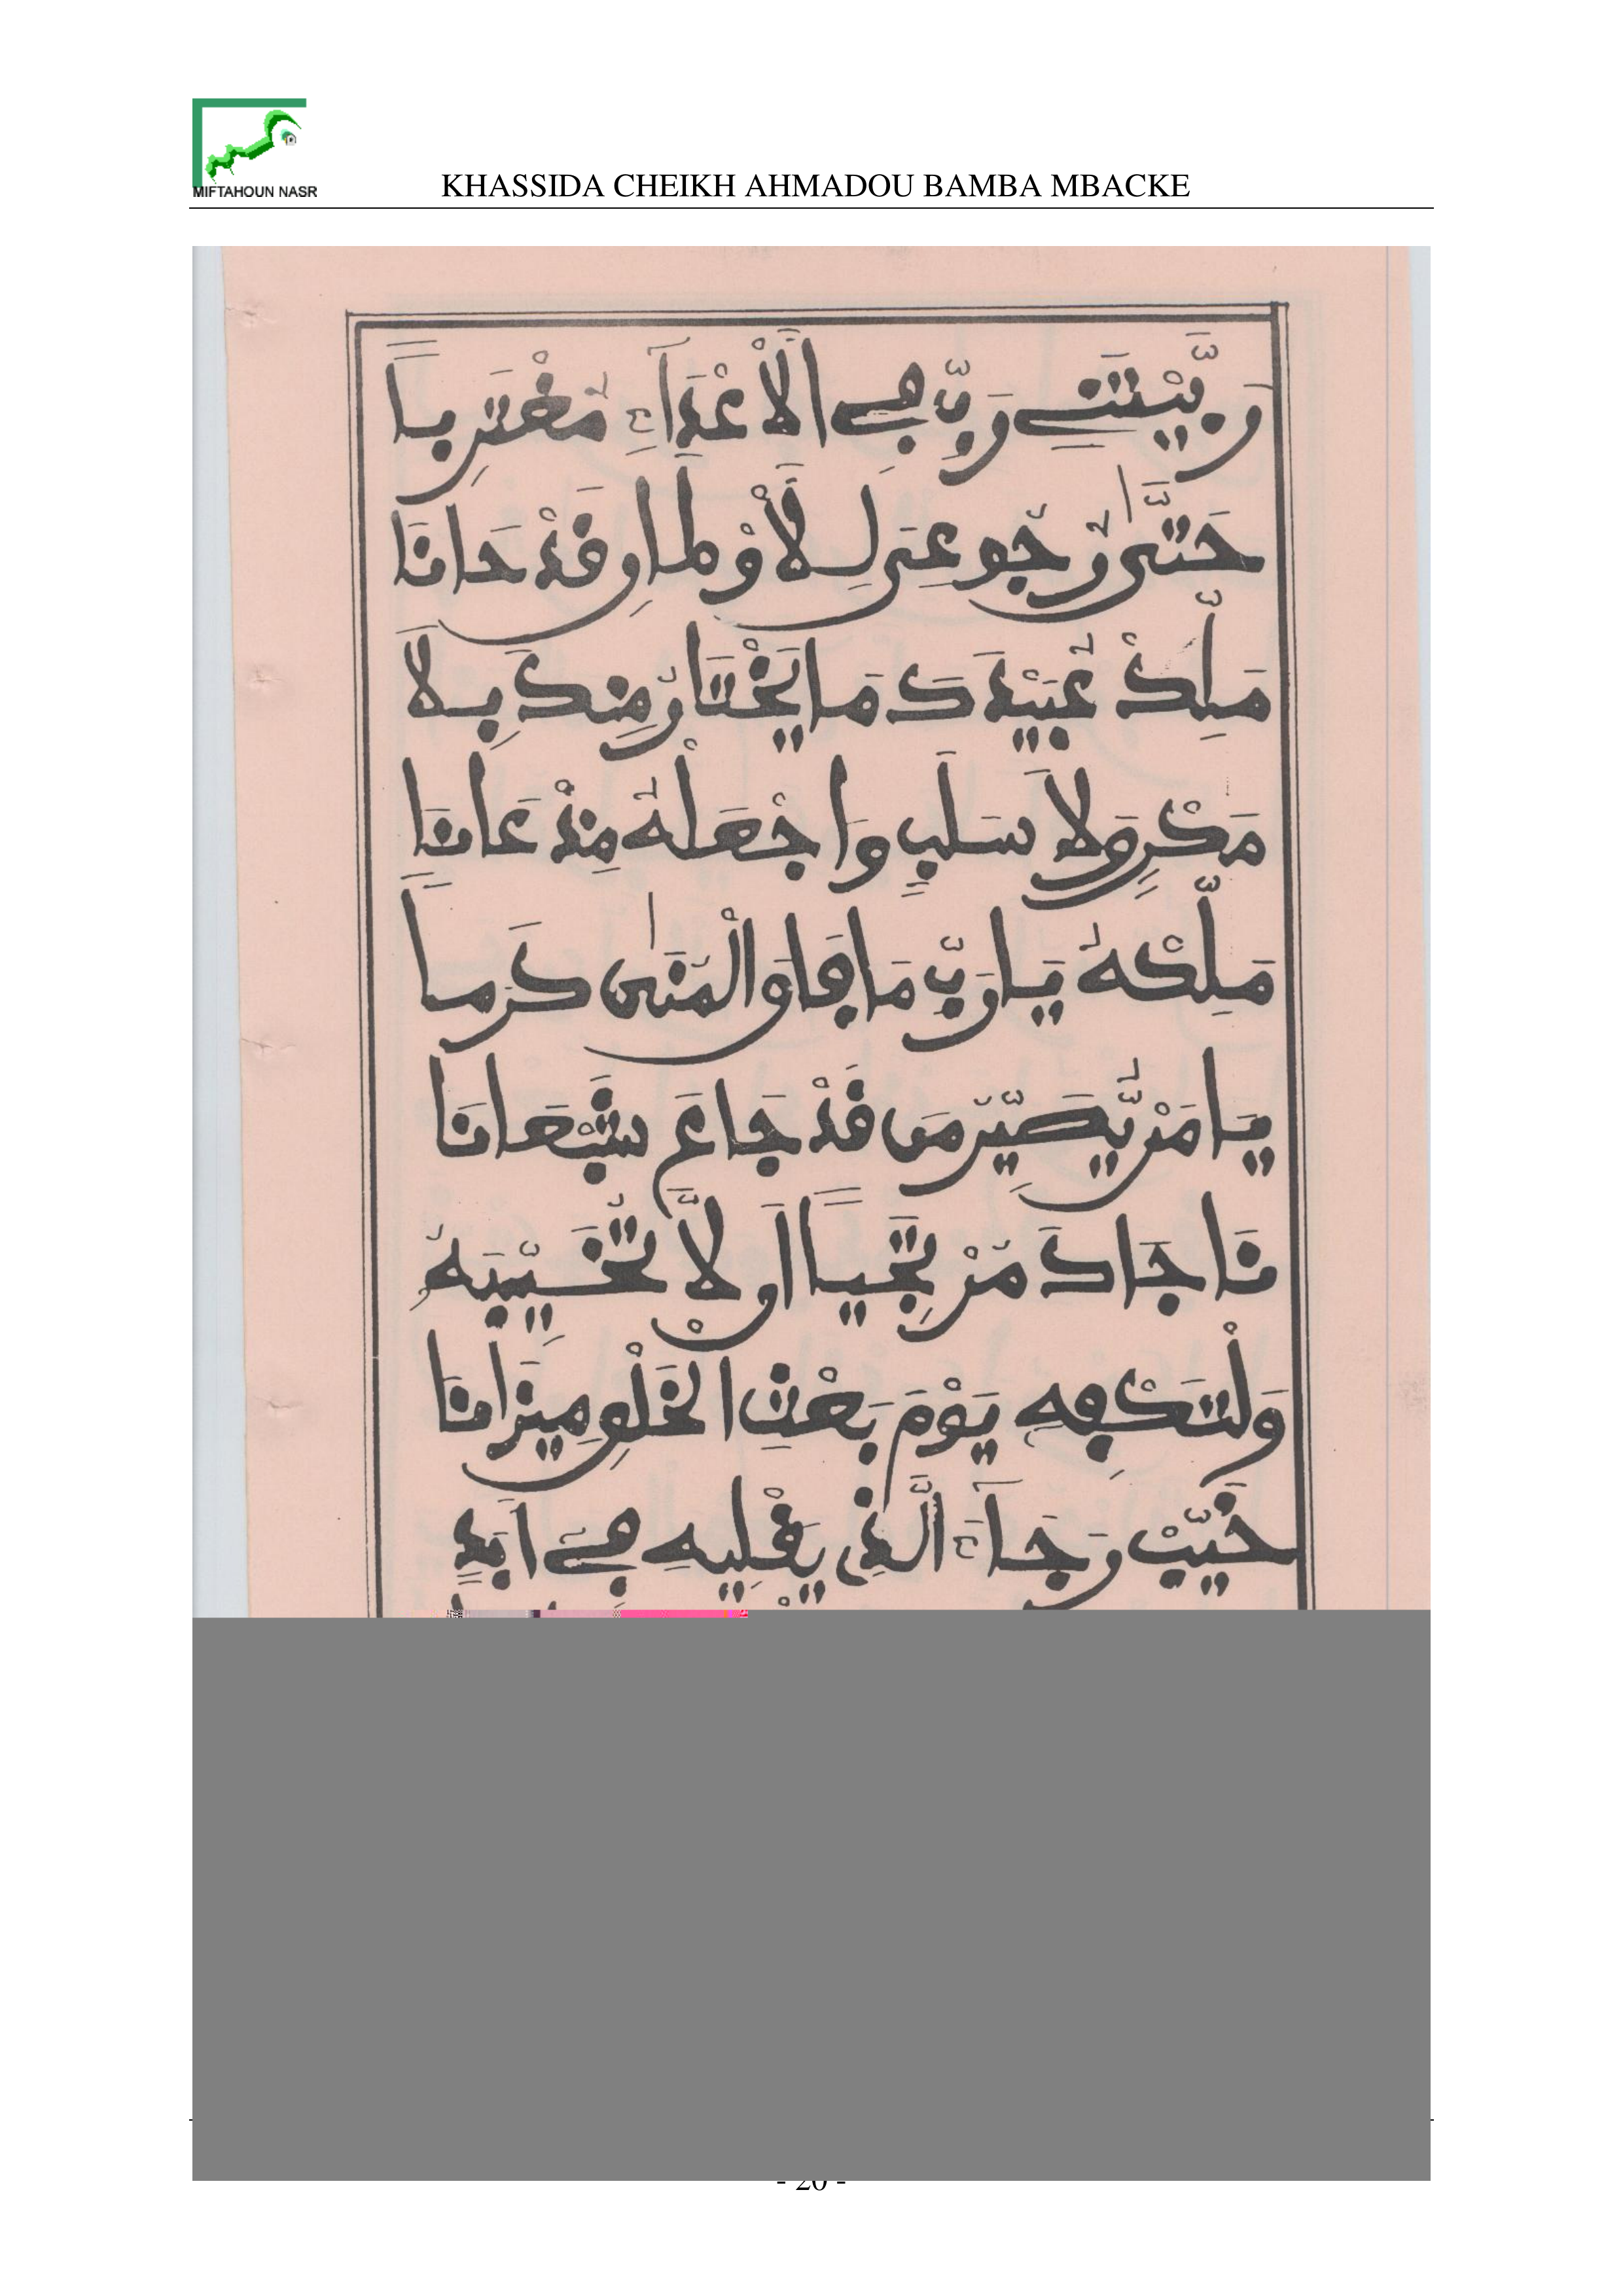 MIFTAHOUN NASR
KHASSIDA CHEIKH AHMADOU BAMBA MBACKE
وَرَبَّيْتَنِي رَبِّ فِي الْأَعْدَاءِ مُغْتَرِباً
حَتَّى رُجُوعِيَ لِلْأَوْطَانِ قَدْ حَانَا
مَلِّكْ عُبَيْدَكَ مَا يَخْتَارُ مِنكَ بِلَا
مَكْرٍ وَلَا سَلَبٍ وَاجْعَلْهُ مِنْ عَانَا
مَلِّكْهُ يَا رَبِّ مَا فَاقَ الْمُنَى كَرَماً
يَا مَنْ يُصَيِّرُ مَن قَدْ جَاعَ شَبْعَانَا
نَاجَاكَ مَنْ يَجْتَبِي أَن لَّا تُخَيِّبَهُ
وَلْتَكْفِهِ يَوْمَ بَعْثِ الْخَلْقِ مِيزَانَا
خَيِّبْ رَجَاءَ الَّذِي يَقْلِيهِ فِي أَبَدٍ
- 20 -